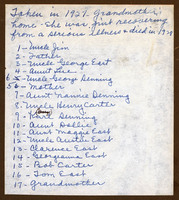 Taken in 1927. Grandmother's
home - She was just recovering
from a serious illness & died in 1929
1 - Uncle Jim
2 - Father
3 - Uncle George East
4 - Aunt Sue
5 - Uncle George Denning
6 - Mother
7 - Aunt Nannie Denning
8 - Uncle Henry Carter
9 - Denning
10 - Aunt Dollie
11 - Aunt Maggie East
12 - Uncle Austin East
13 - Clarence East
14 - Georgianna East
15 - Bob Carter
16 - Tom East
17 - Grandmother